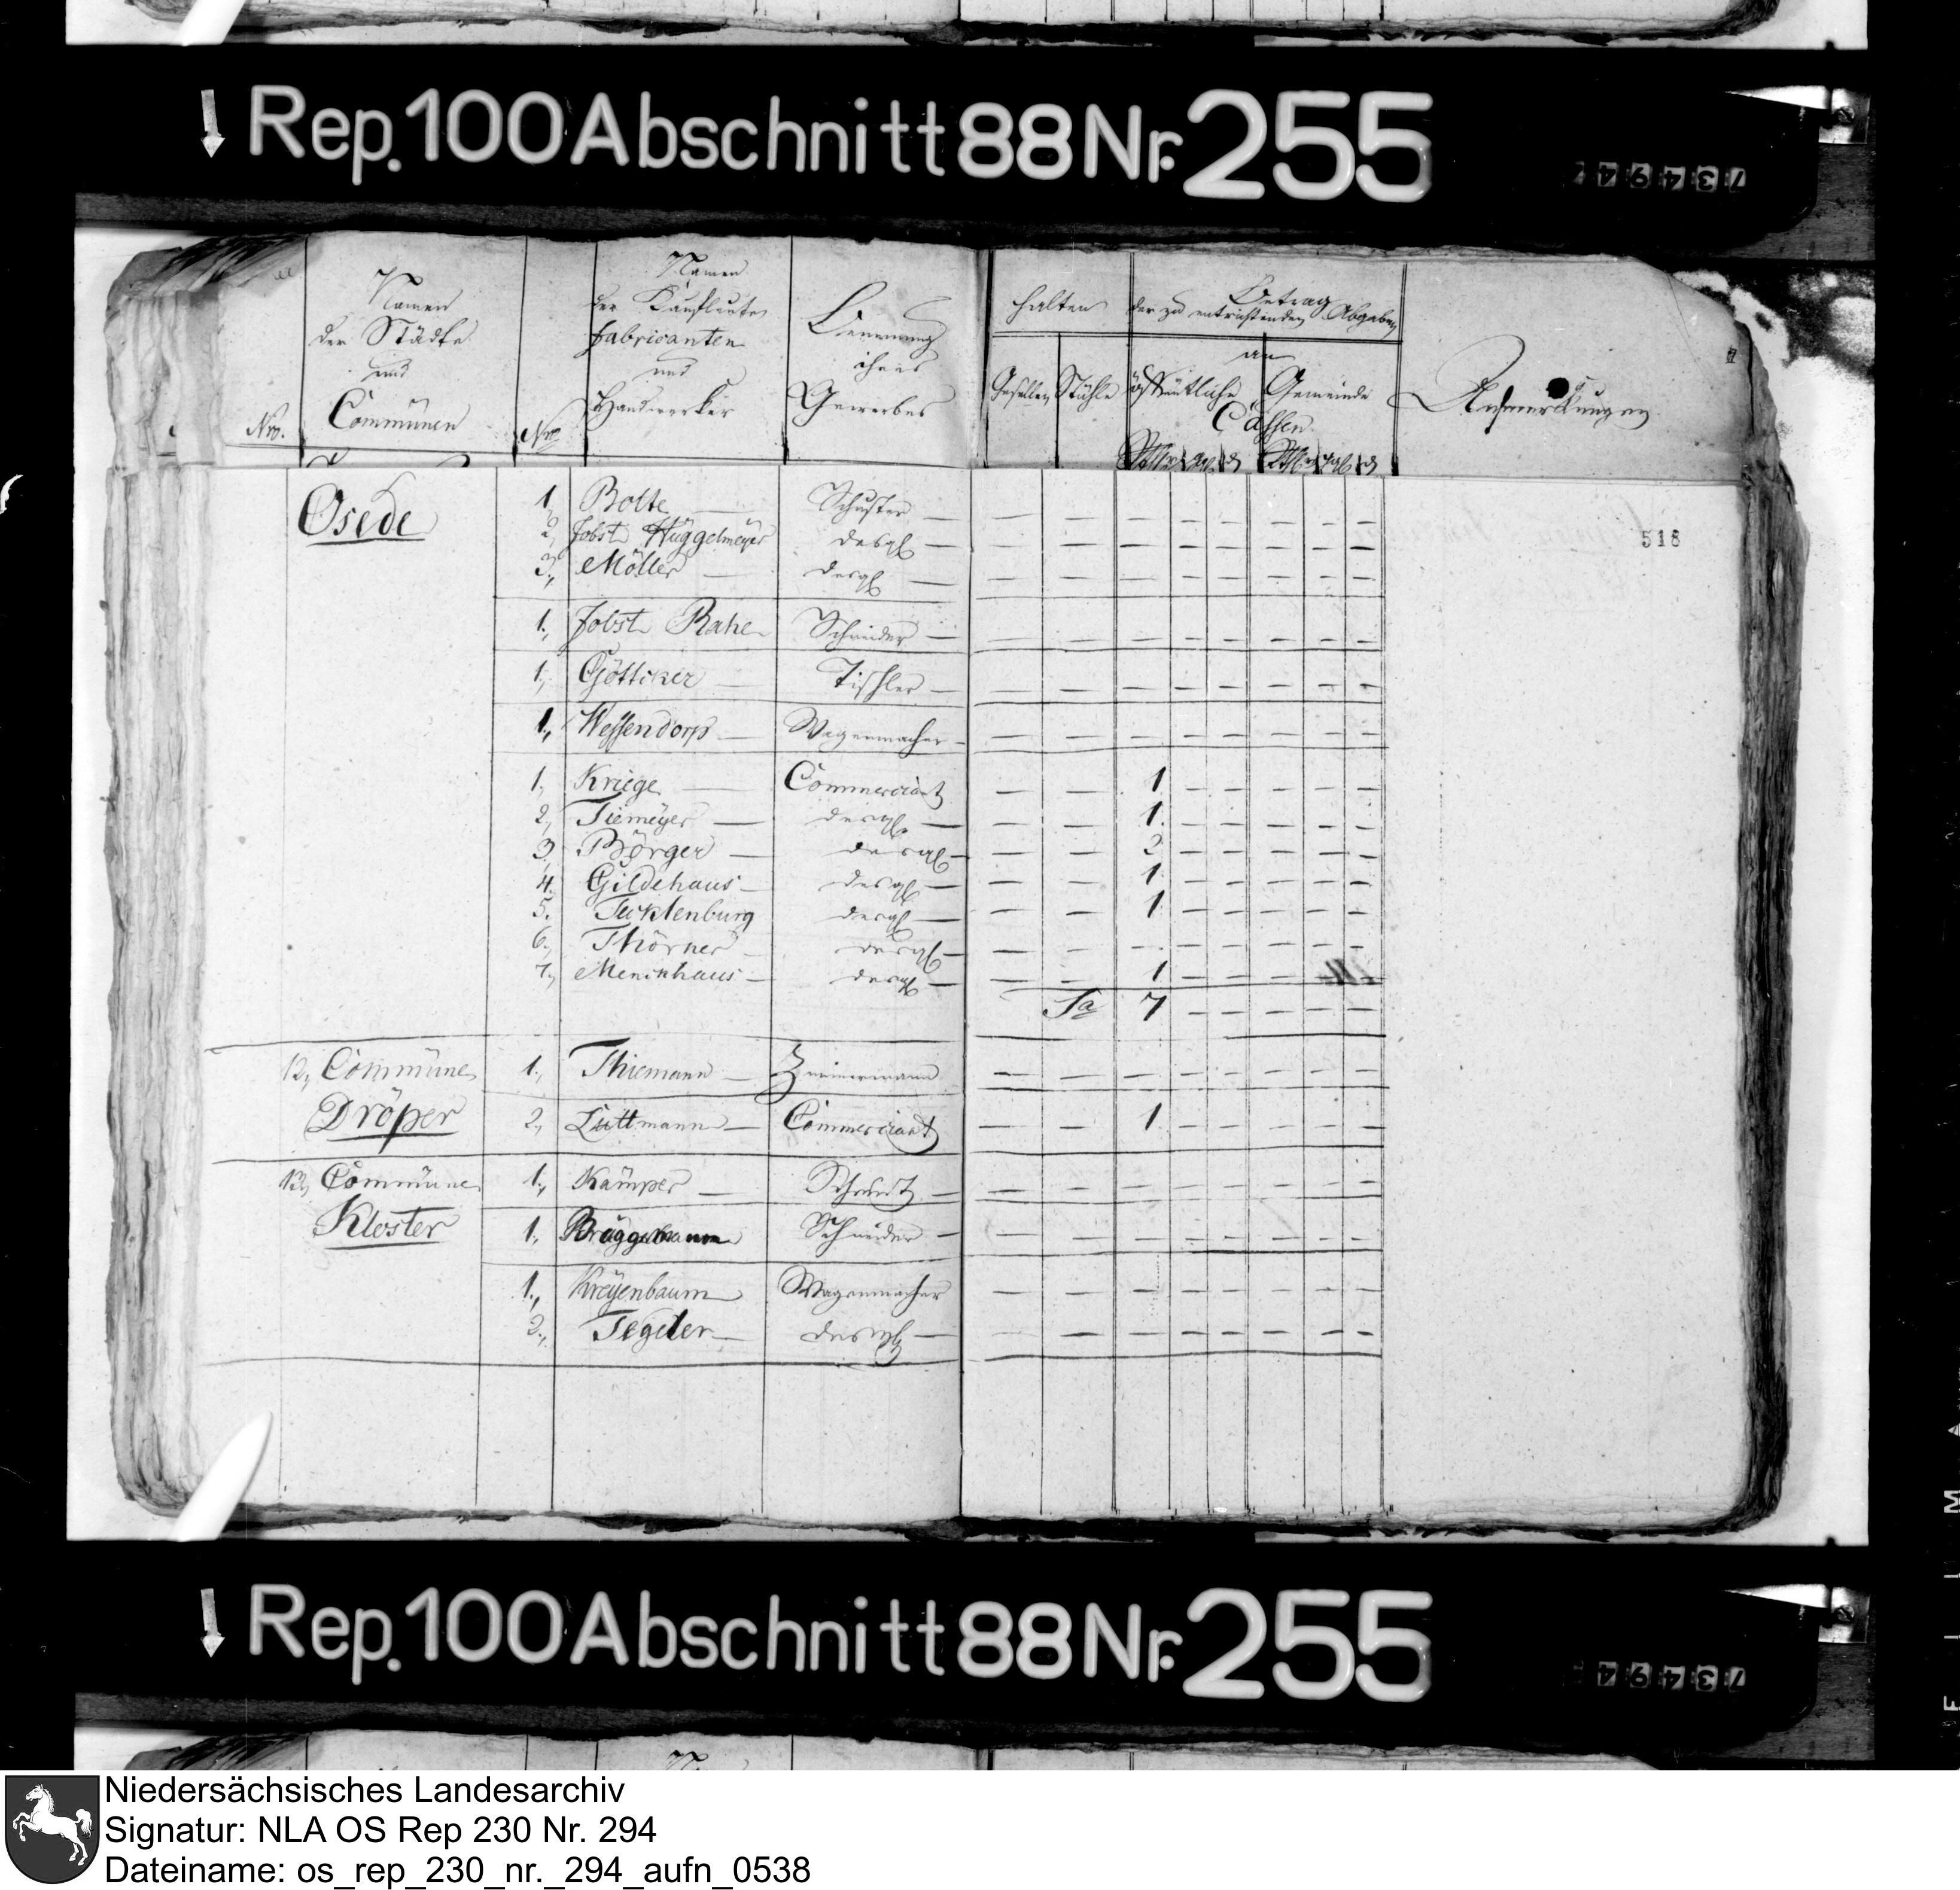 ↓ Rep. 100 Abschnitt 88 Nr. 255
734947
Nro.
Namen
der Städte
und
Communen
Nro
Namen
der Kaufleute
Fabricanten
und
Handwerker
Benennung
ihres
Gewerbes
halten
Gesellen Stühle
Betrag
der zu entrichtenden Abgaben
an
öffentliche Gemeinde
Cassen
Rthlr ggl d Rthlr ggl d
Anmerkungen
518
Osede 1, Bolte — Schuster — — — — — — — — —
2, Jobst Hüggelmeyer desgl — — — — — — — — —
3., Möller — desgl — — — — — — — — —
1., Jobst Rahe Schneider — — — — — — — — —
1., Göttcker — Tischler — — — — — — — — —
1., Wessendorp — Wagenmacher — — — — — — — — —
1., Kriege — Commerciant — — 1 — — — — —
2, Tiemeyer — desgl — — — 1. — — — — —
3, Börger — desgl — — — 2 — — — — —
4. Gildehaus — desgl — — — 1 — — — — —
5. Tecklenburg desgl — — — 1 — — — — —
6., Thörner — desgl — — — — — — — — —
7., Menckhaus — desgl — — — 1 — — — — —
Sa 7 — — — — —
12, Commüne 1., Thiemann — Zimmermann — — — — — — — —
Dröper 2., Lüttmann — Commerciant — — 1 — — — — —
13, Commüne 1., Kämper — Schmidt — — — — — — — — —
Kloster 1., Brüggemann Schneider — — — — — — — —
1., Kreyenbaum Wagenmacher — — — — — — — —
2., Tegeler — desgl — — — — — — — — —
↓ Rep. 100 Abschnitt 88 Nr. 255
734947
Niedersächsisches Landesarchiv
Signatur: NLA OS Rep 230 Nr. 294
Dateiname: os_rep_230_nr._294_aufn_0538